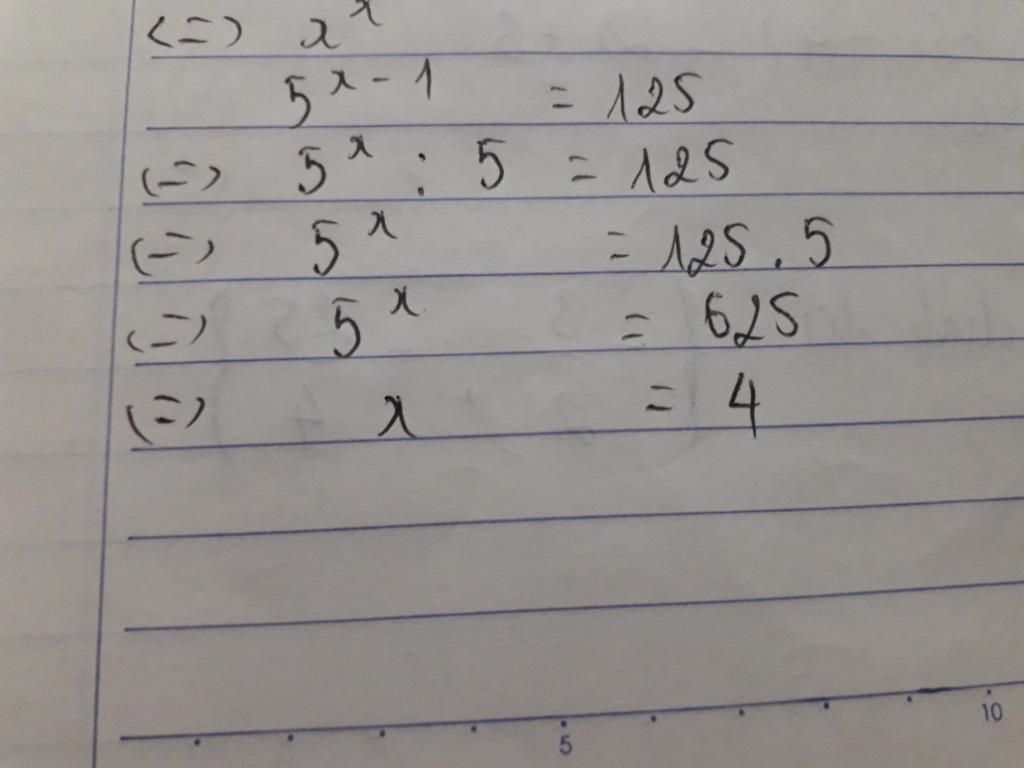 (=) x^x
5^x-1 = 125
(=) 5^x : 5 = 125
(=) 5^x = 125 . 5
(=) 5^x = 625
(=) x = 4
5 10